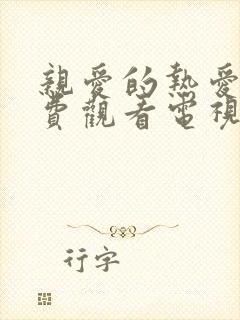 親愛的熱愛
費觀看電視
行字